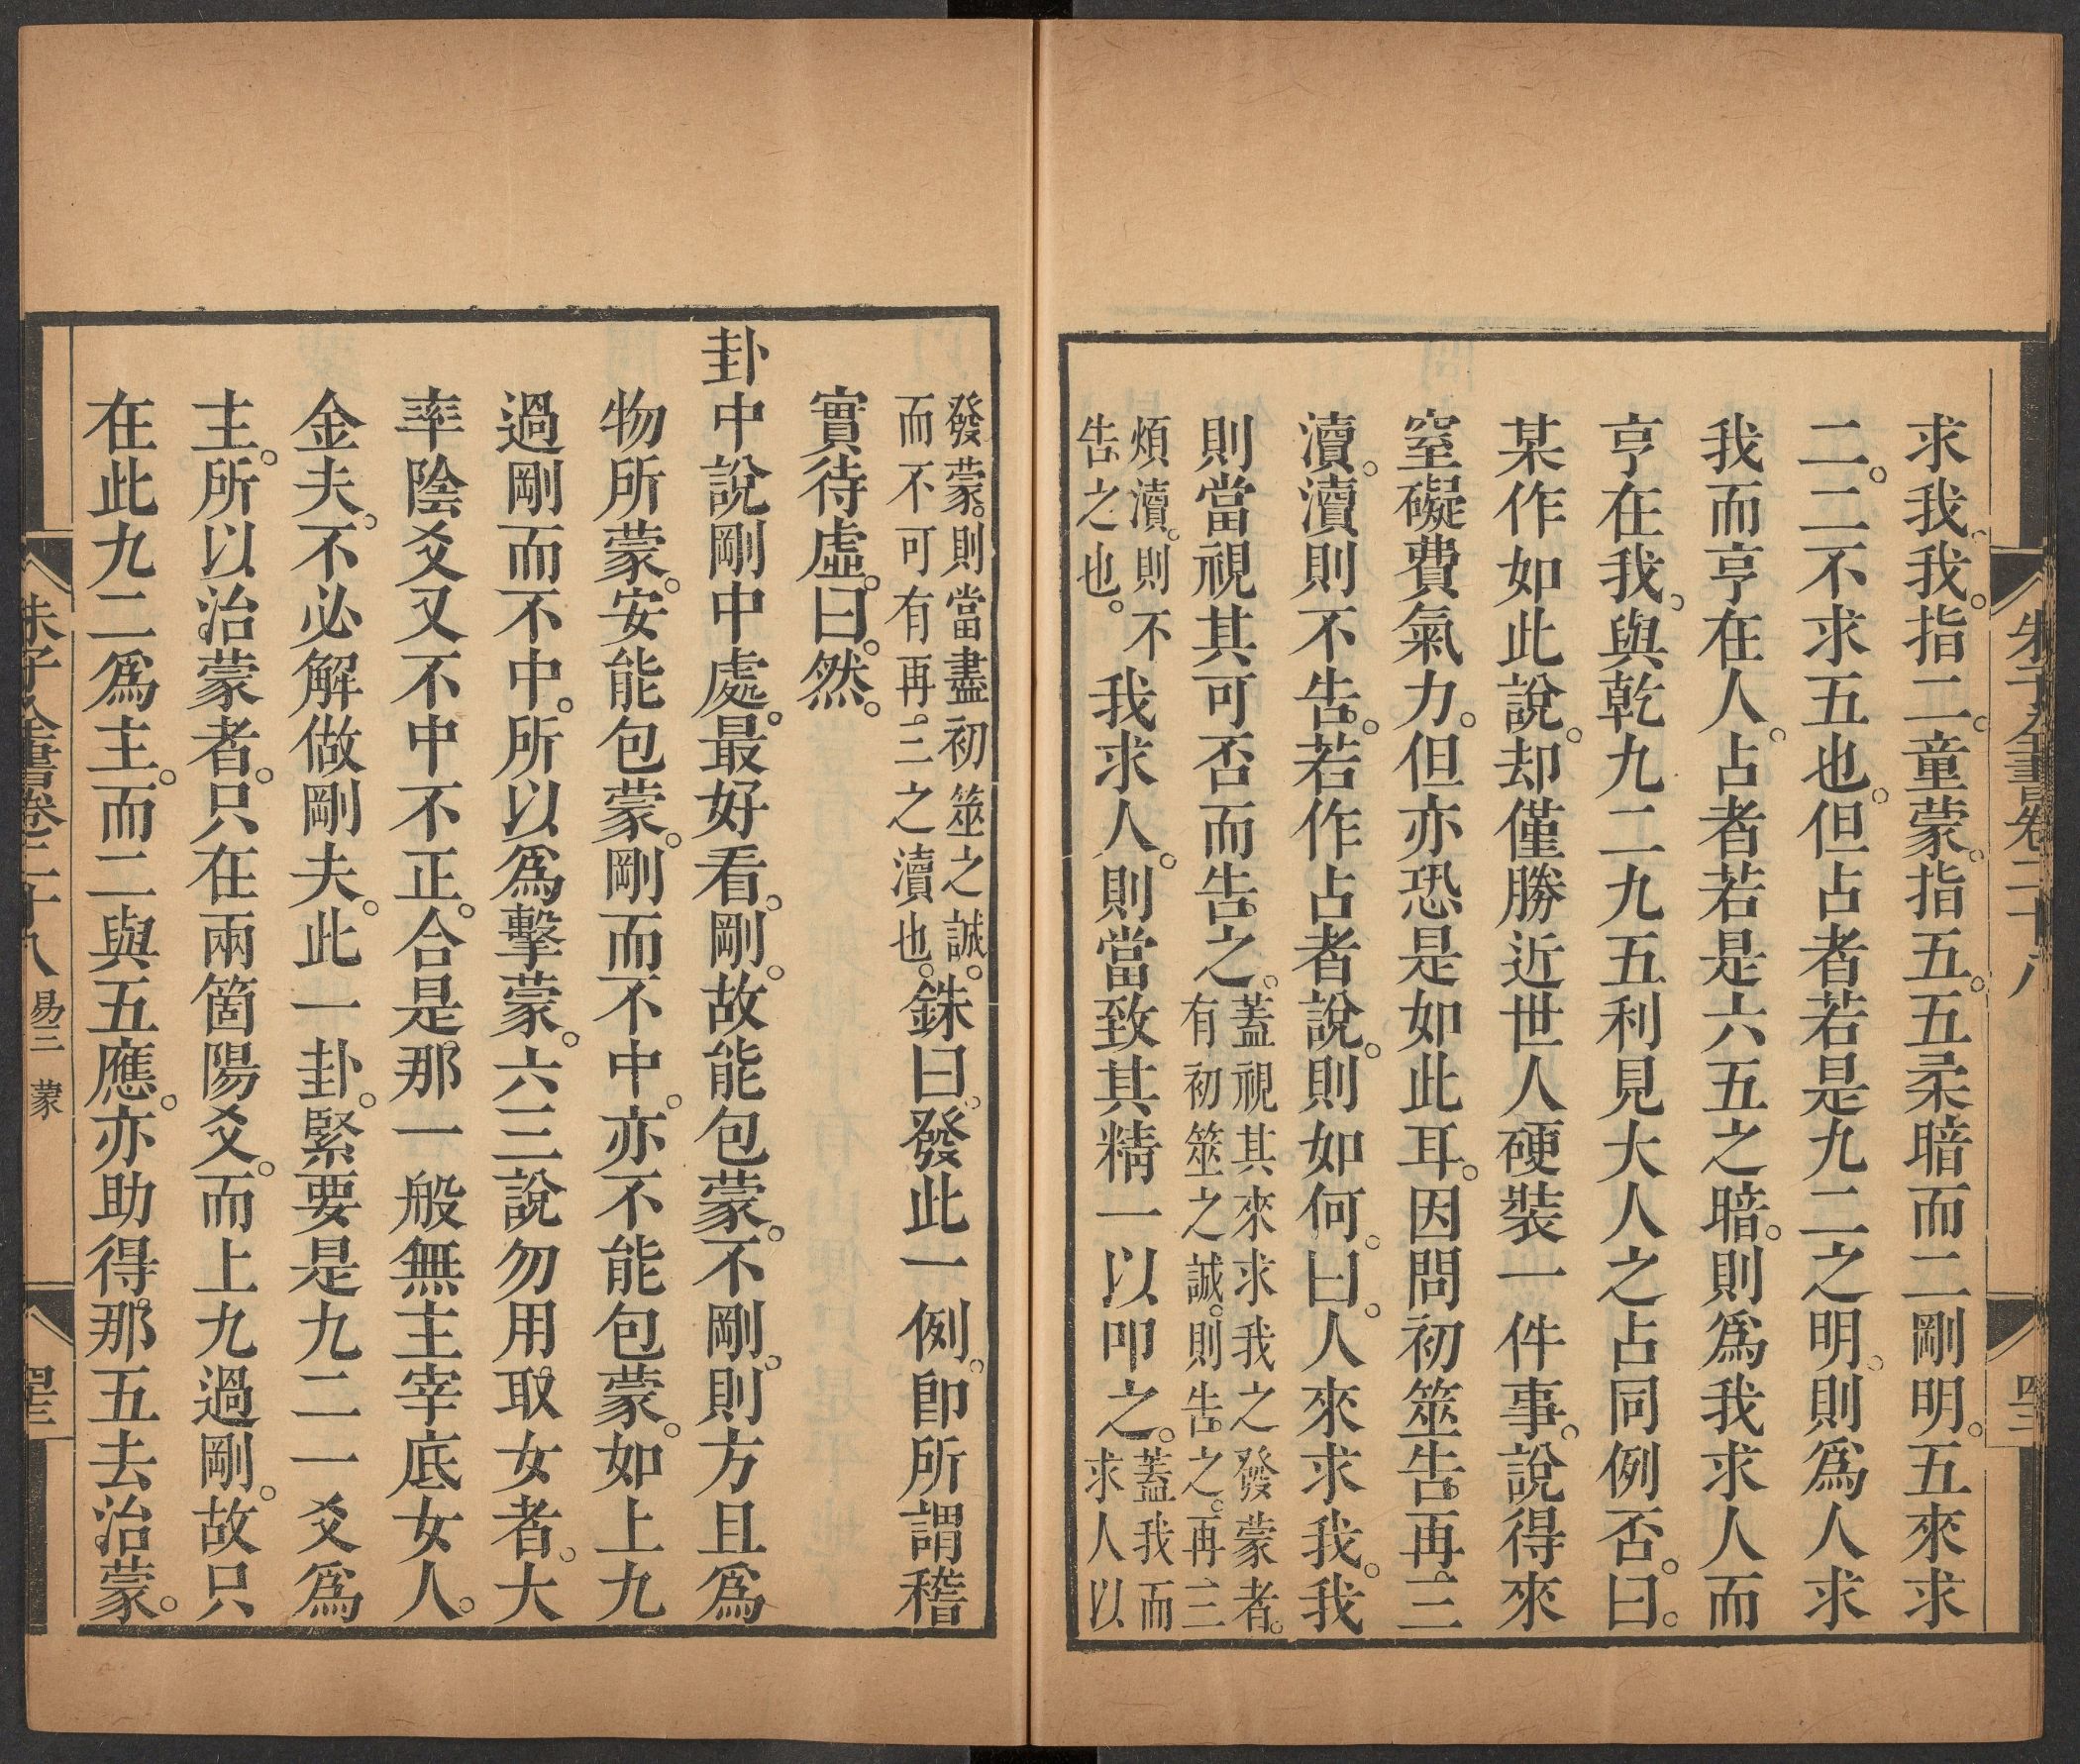 朱子全書卷二十八
求我。我。指二。童蒙。指五。五柔暗而二剛明。五來求
二。二不求五也。但占者若是九二之明。則爲人求
我而亨在人。占者若是六五之暗。則爲我求人而
亨在我。與乾九二九五利見大人之占同例否。曰。
某作如此說。却僅勝近世人硬裝一件事。說得來
窒礙費氣力。但亦恐是如此耳。因問初筮告。再三
瀆。瀆則不告。若作占者說。則如何。曰。人來求我。我
則當視其可否而告之。蓋視其來求我之發蒙者。有初筮之誠。則告之。再三
煩瀆。則不告之也。我求人。則當致其精一以叩之。蓋我而求人以
發蒙。則當盡初筮之誠。而不可有再三之瀆也。銖曰。發此一例。卽所謂稽
實待虛。曰。然。
卦中說剛中處。最好看。剛。故能包蒙。不剛。則方且爲
物所蒙。安能包蒙。剛而不中。亦不能包蒙。如上九
過剛而不中。所以爲擊蒙。六三說勿用取女者。大
率陰爻又不中不正。合是那一般無主宰底女人。
金夫。不必解做剛夫。此一卦。緊要是九二一爻爲
主。所以治蒙者。只在兩箇陽爻。而上九過剛。故只
在此九二爲主。而二與五應。亦助得那五去治蒙。
朱子全書卷二十八 易三 蒙